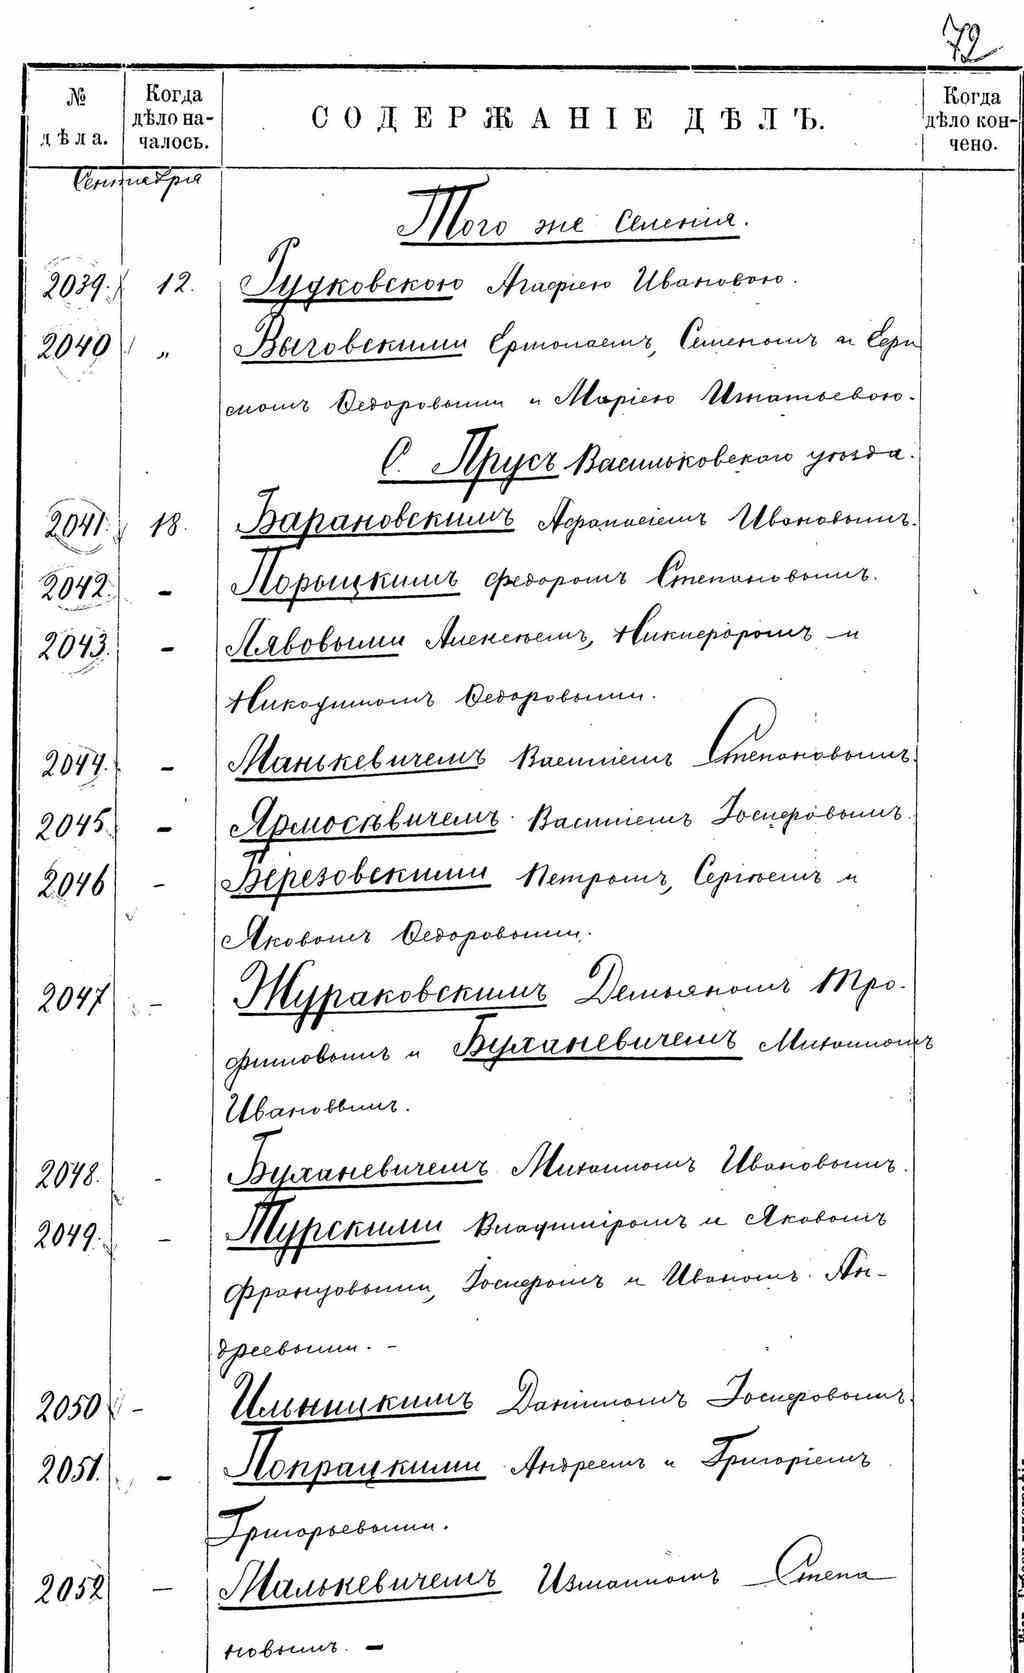 72
№ дѣла. Когда дѣло началось. СОДЕРЖАНІЕ ДѢЛЪ. Когда дѣло кончено.
Сентября
Того же селенія.
2039. 12. Рудковскою Агафіею Ивановою.
2040 „ Выговскими Ермолаемъ, Семеномъ и
Федоровыми и Маріею Игнатьевою.
С. Прусъ Васильковскаго уѣзда.
2041. 18. Барановскимъ Афанасіемъ Ивановымъ.
2042. - Порыцкимъ Федоромъ Степановымъ.
2043. - Лявовыми Алексѣемъ, Никифоромъ и
Никодимомъ Федоровыми.
2044. - Манькевичемъ Василіемъ Степановымъ.
2045. - Ярмосѣвичемъ Василіемъ Іосифовымъ.
2046 - Березовскими Петромъ, Сергѣемъ и
Яковомъ Федоровыми.
2047 - Жураковскимъ Демьяномъ Тро-
фимовымъ и Буханевичемъ Михаиломъ
Ивановымъ.
2048. - Буханевичемъ Михаиломъ Ивановымъ.
2049. - Турскими Владиміромъ и Яковомъ
Францовыми, Іосифомъ и Иваномъ Ан-
дреевыми. -
2050 - Ильницкимъ Даніиломъ Іосифовымъ.
2051. - Попрацкими Андреемъ и Григоріемъ
Григорьевыми.
2052 - Малькевичемъ Измаиломъ Степа
новымъ. -